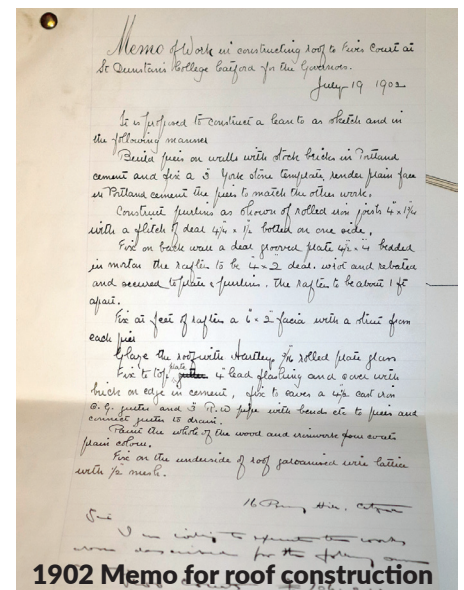 Memo of Work in constructing roof to Fives Court at
St Dunstan's College Catford for the Governors.
July 19 1902
It is proposed to construct a lean to as sketch and in
the following manner
Build piers on walls with stock bricks in Portland
cement and fix a 3 York stone template, render plain face
in Portland cement the piers to match the other work.
Construct purlins as shown of rolled iron joists 4" x 1¾
with a flitch of deal 4¼ x 1½ bolted on one side.
Fix on back wall a deal grooved plate 4½ x 4 bedded
in mortar the rafters to be 4 x 2 deal. wrot and rebated
and secured to plate & purlins. the rafters to be about 1 ft
apart.
Fix at feet of rafters a 6 x 2 facia with a strut from
each pier
Glaze the roof with Hartley rolled plate glass
Fix to top plate 4 lead flashing and cover with
brick on edge in cement, fix to eaves a 4½ cast iron
O.G. gutter and 3 R.W pipe with bends etc to piers and
connect gutter to drain.
Paint the whole of the wood and ironwork four coats
plain colour.
Fix on the underside of roof galvanised wire lattice
with ½ mesh.
16 Perry Hill, Catford
Sir
I am willing to execute the works
above described for the
1902 Memo for roof construction